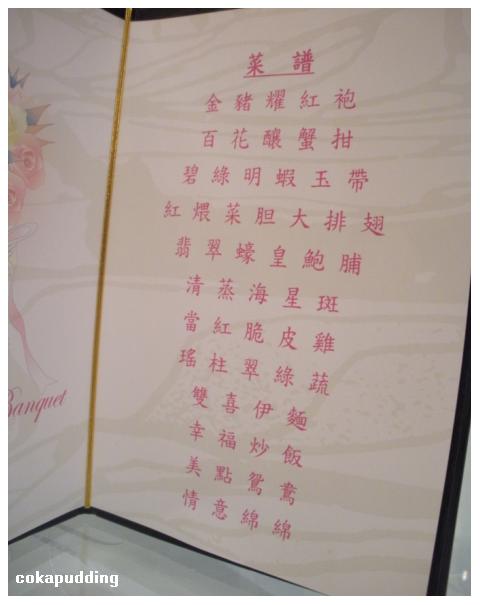 Banquet
菜譜
金豬耀紅袍
百花釀蟹拑
碧綠明蝦玉帶
紅煨菜胆大排翅
翡翠蠔皇鮑脯
清蒸海星斑
當紅脆皮雞
瑤柱翠綠蔬
雙喜伊麵
幸福炒飯
美點鴛鴦
情意綿綿
cokapudding